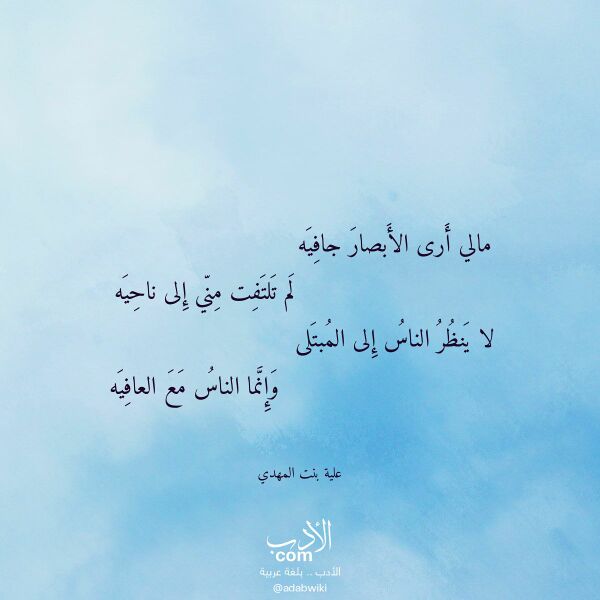 مالي أَرى الأَبصارَ جافِيَه
لَم تَلتَفِت مِنّي إِلى ناحِيَه
لا يَنظُرُ الناسُ إِلى المُبتَلى
وَإِنَّما الناسُ مَعَ العافِيَه
علية بنت المهدي
الأدب
com
الأدب .. بلغة عربية
@adabwiki